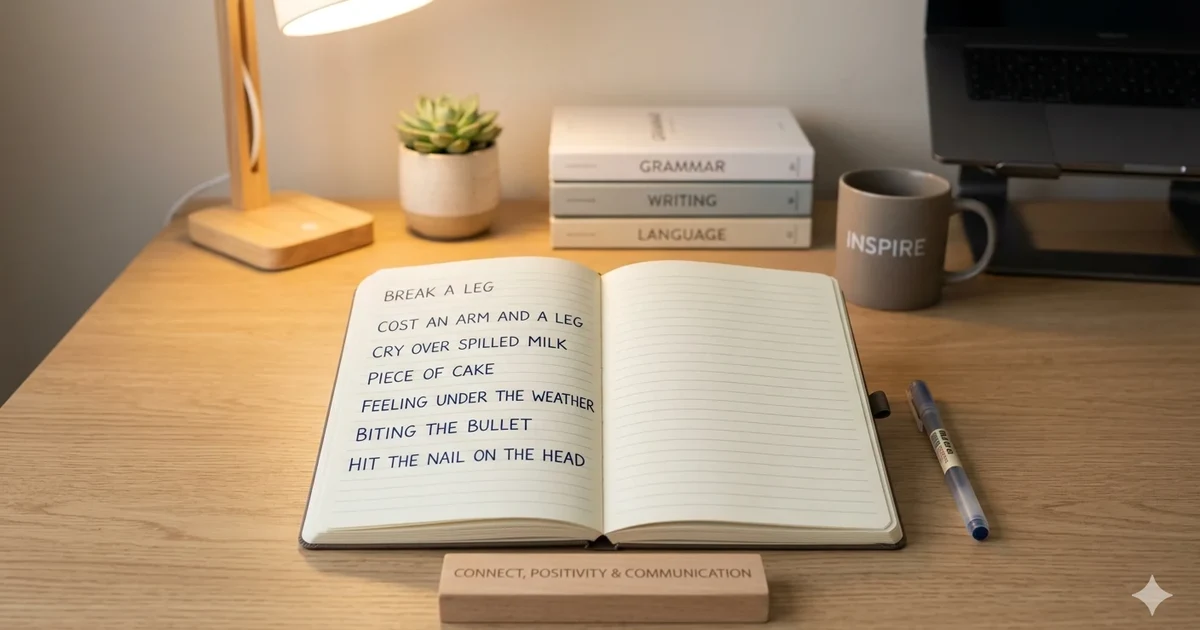 GRAMMAR
WRITING
LANGUAGE
INSPIRE
BREAK A LEG
COST AN ARM AND A LEG
CRY OVER SPILLED MILK
PIECE OF CAKE
FEELING UNDER THE WEATHER
BITING THE BULLET
HIT THE NAIL ON THE HEAD
CONNECT, POSITIVITY & COMMUNICATION